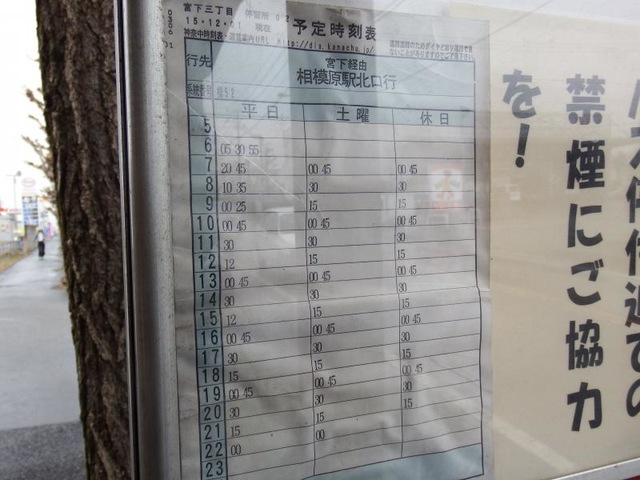 宮下三丁目 停留所 02
15.12.01 現在
予定時刻表
神奈中時刻表・運賃案内URL http://dia.kanachu.jp/
行先 宮下経由
相模原駅北口行
平日 土曜 休日
5
6 05 30 55
7 20 45 00 45 00 45
8 10 35 30 30
9 00 25 15 15
10 00 45 00 45 00 45
11 30 30 30
12 12 15 15
13 00 45 00 45 00 45
14 30 30 30
15 12 15 15
16 00 45 00 45 00 45
17 30 30 30
18 15 15 15
19 00 45 00 45 00 45
20 30 30 30
21 15 15 15
22 00 00
23
禁煙にご協力
を！